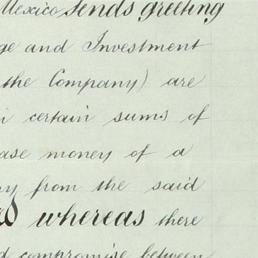 Mexico sends greeting
ge and Investment
the Company) are
certain sums of
ase money of a
ny from the said
whereas there
compromise between